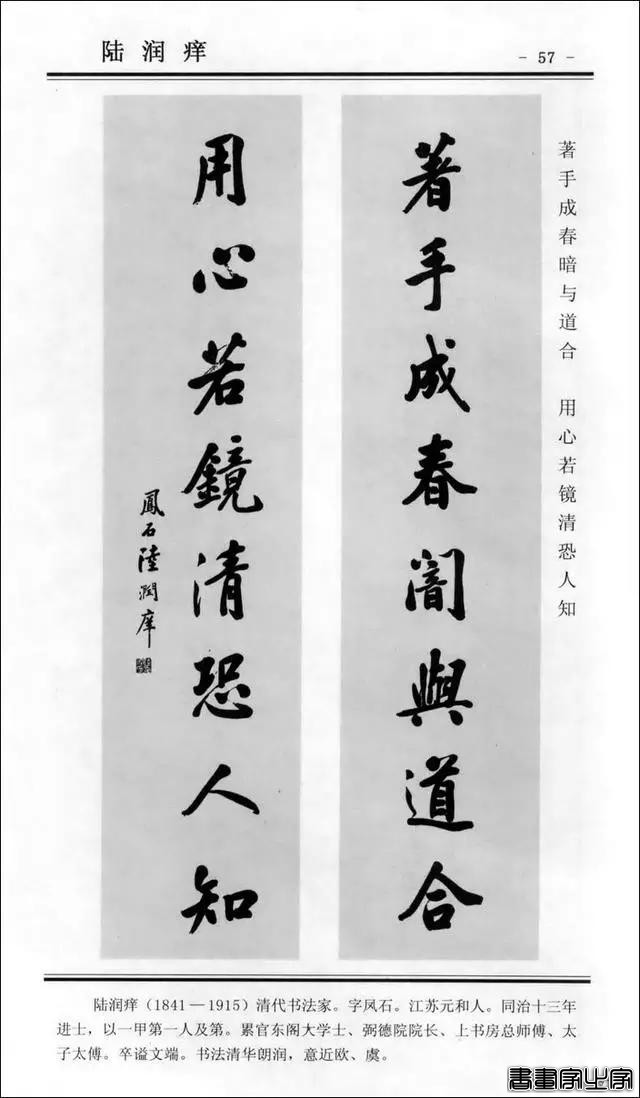 陆润痒
- 57 -
著手成春暗与道合 用心若镜清恐人知
著手成春闇與道合
用心若鏡清恐人知
鳳石陸潤庠
陆润痒（1841—1915）清代书法家。字凤石。江苏元和人。同治十三年
进士，以一甲第一人及第。累官东阁大学士、弼德院院长、上书房总师傅、太
子太傅。卒谥文端。书法清华朗润，意近欧、虞。
書畫